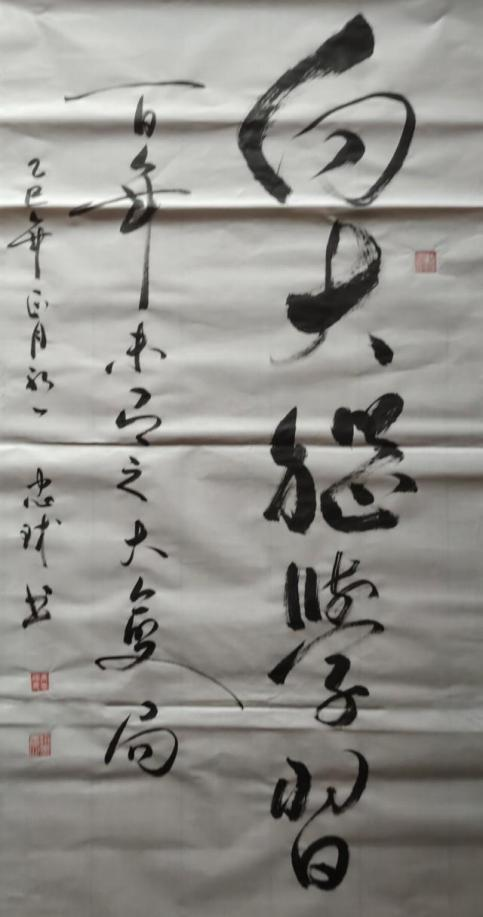 向大學習
百年未有之大變局
乙巳年正月初一 忠球书